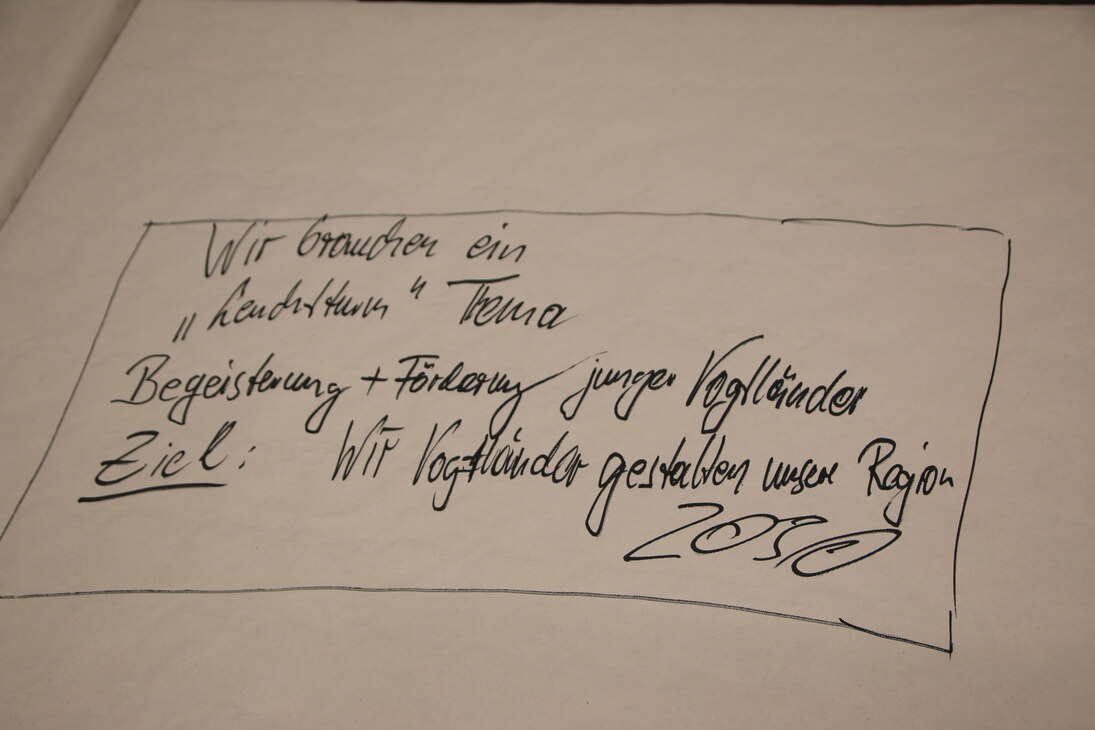 Wir brauchen ein
„Leuchtturm" Thema
Begeisterung + Förderung junger Vogtländer
Ziel: Wir Vogtländer gestalten unsere Region
2030